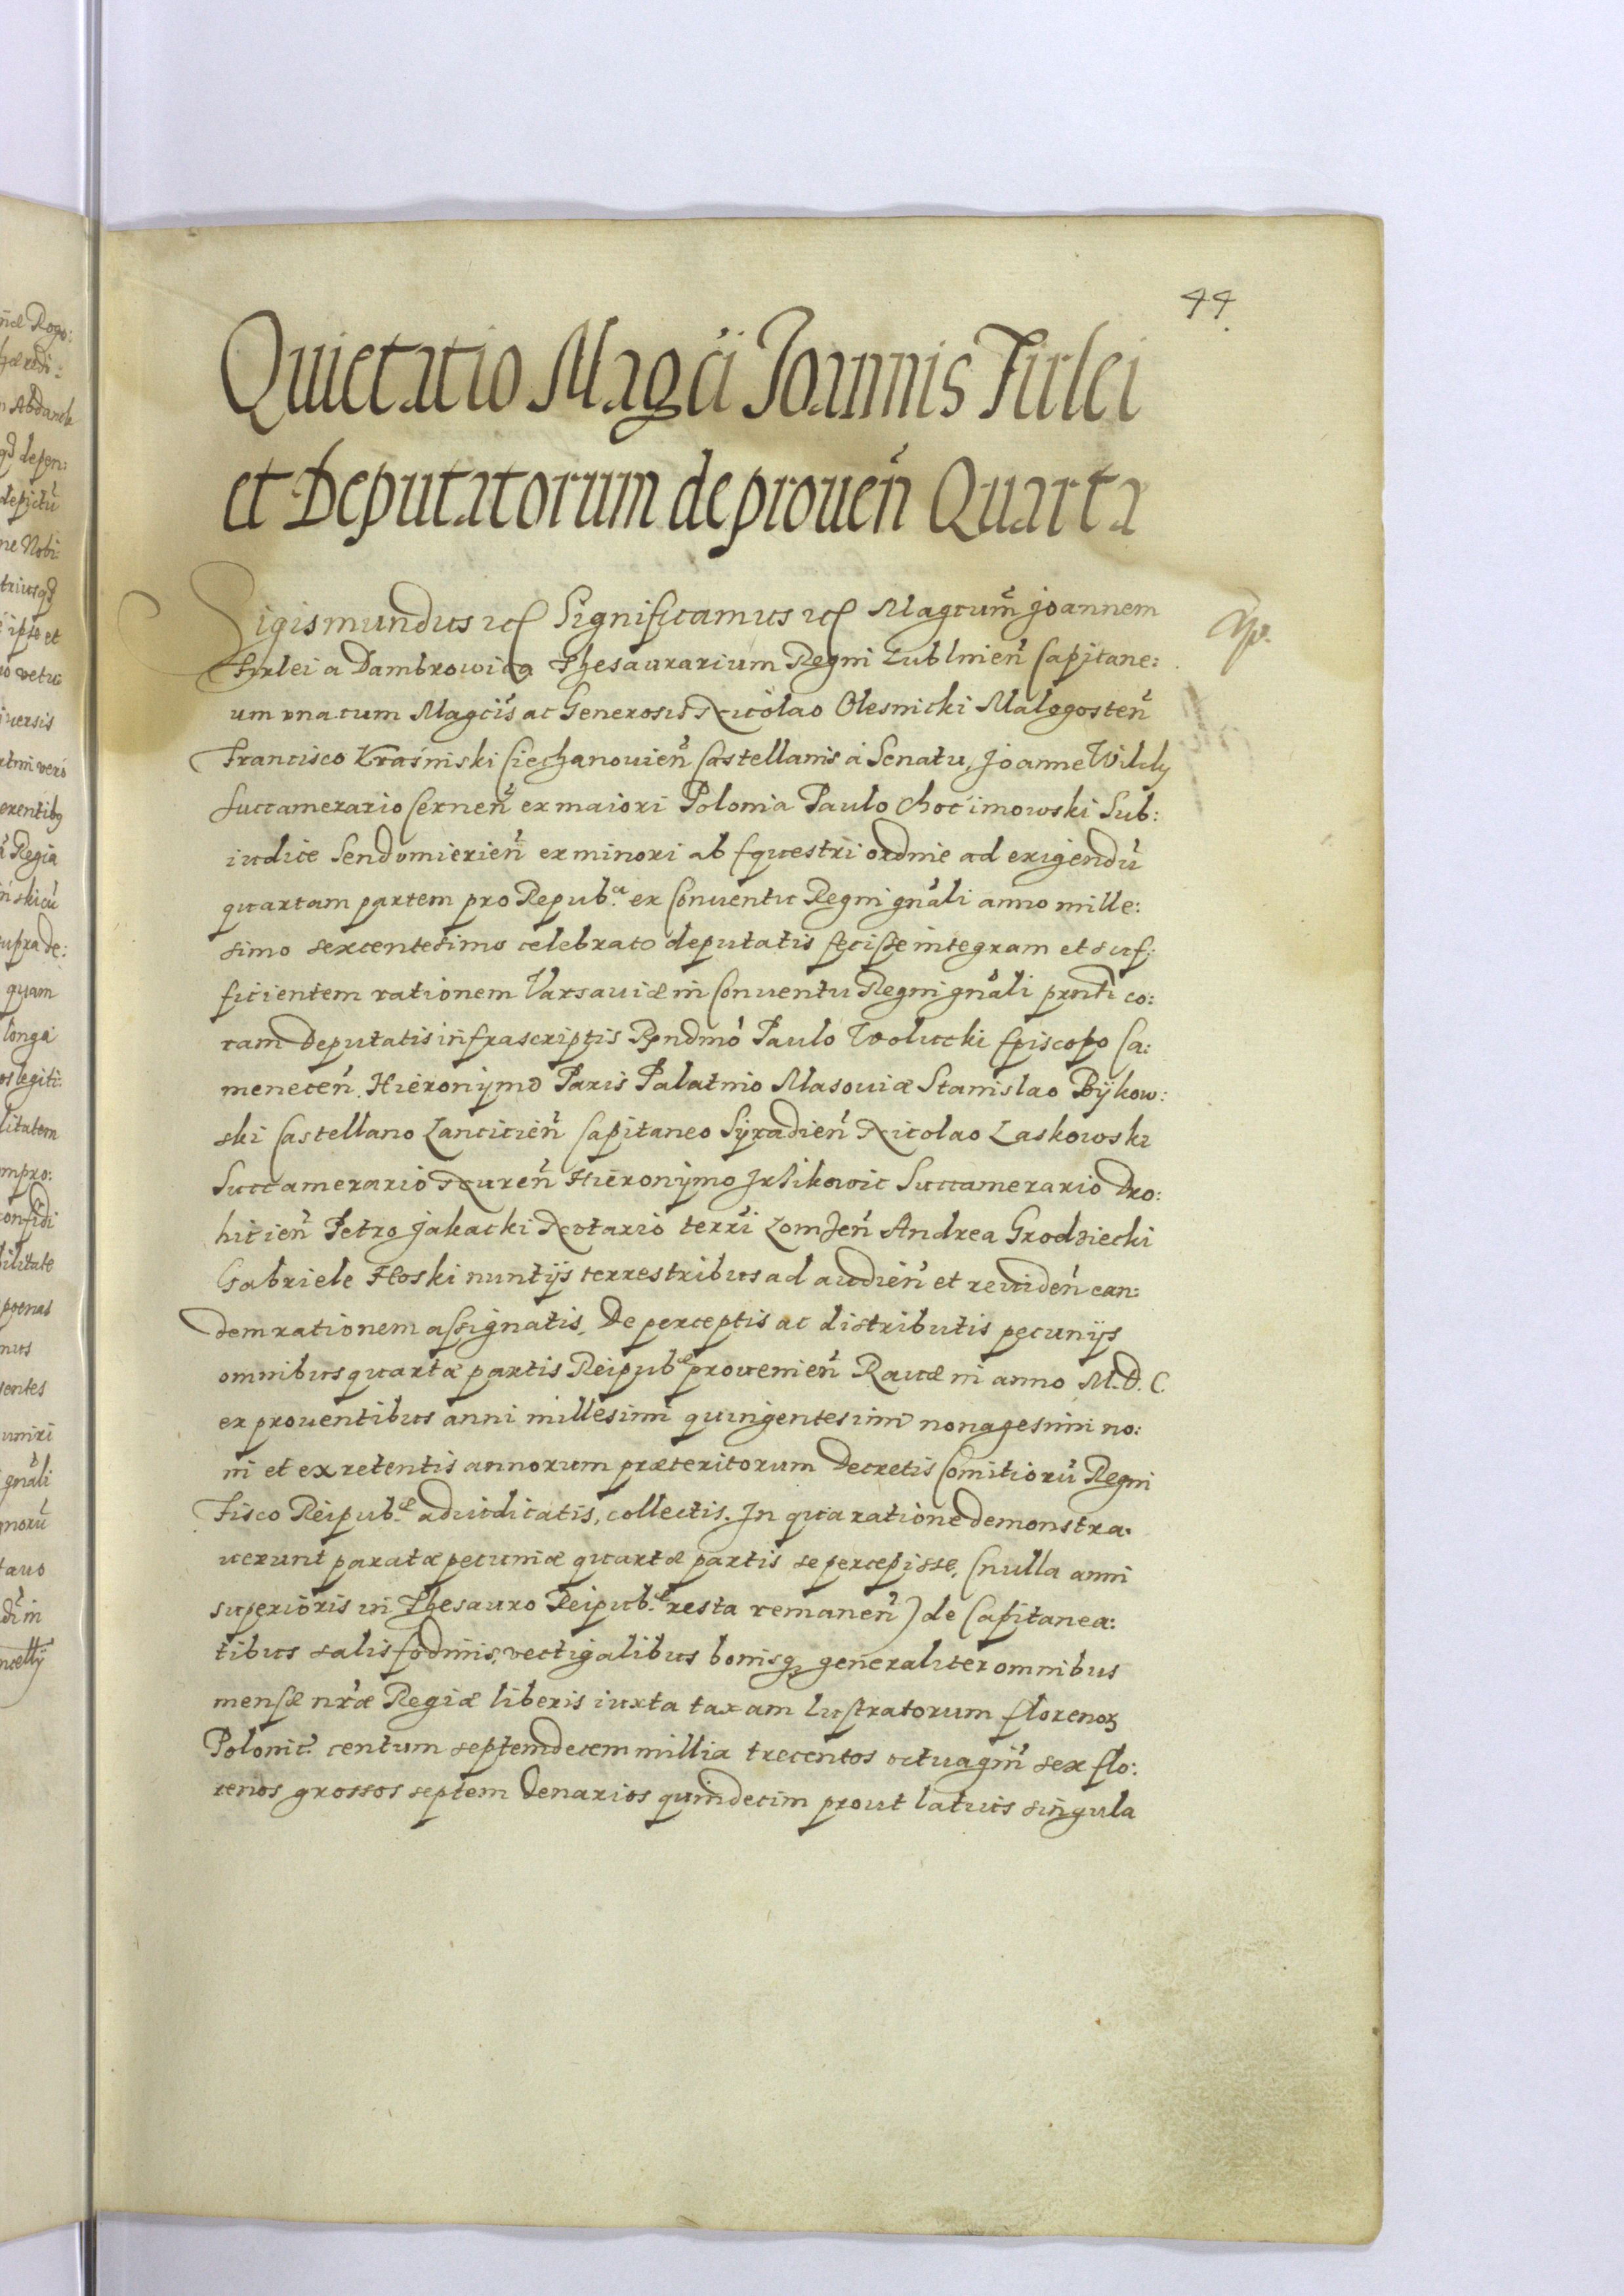 44.
Quietatio Magci Joannis Firlei
et Deputatorum de prouen Quarta
Sigismundus etc Significamus etc Magcum Joannem
Firlei a Dambrowica Thesaurarium Regni Lublinen Capitane:
um vna cum Magcis ac Generosis Nicolao Olesnicki Malogosten
Francisco Krasinski Ciechanouien Castellanis a Senatu, Joanne Wilcly
Succamerario Cernen ex maiori Polonia Paulo Chocimowski Sub:
iudice Sendomirien ex minori ab Equestri ordine ad exigendu
quartam partem pro Repub.ca ex Conuentu Regni gnali anno mille:
simo sexcentesimo celebrato deputatis fecisse integram et suf:
ficientem rationem Varsauiæ in Conuentu Regni gnali pnti co:
ram Deputatis infrascriptis Rndmo Paulo Wolucki Episcopo Ca:
menecen. Hieronymo Paris Palatino Masouiæ Stanislao Bÿkow:
ski Castellano Lancicien Capitaneo Sÿradien Nicolao Laskowski
Succamerario Nuren Hieronymo Irzikowic Succamerario Dro:
hicien Petro Jakacki Notario terri Lomzen Andrea Grodziecki
Gabriele Floski nuntijs terrestribus ad audien et reuiden ean:
dem rationem assignatis. De perceptis ac distributis pecunijs
omnibus quartæ partis Reipub.æ prouenien Rauæ in anno M.D.C.
ex prouentibus anni millesimi quingentesimi nonagesimi no:
ni et ex retentis annorum præteritorum Decretis Comitioru Regni
Fisco Reipub.æ adiudicatis, collectis. In qua ratione demonstra:
uerunt paratæ pecuniæ quartæ partis se percepisse, (nulla anni
superioris in Thesauro Reipub.æ resta remanen) de Capitanea:
tibus salisfodinis, vectigalibus bonisq generaliter omnibus
mensæ nræ Regiæ liberis iuxta taxam Lustratorum florenoꝝ
Polonic. centum septemdecem millia trecentos octuagin sex flo:
renos grossos septem denarios quindecim prout latius singula